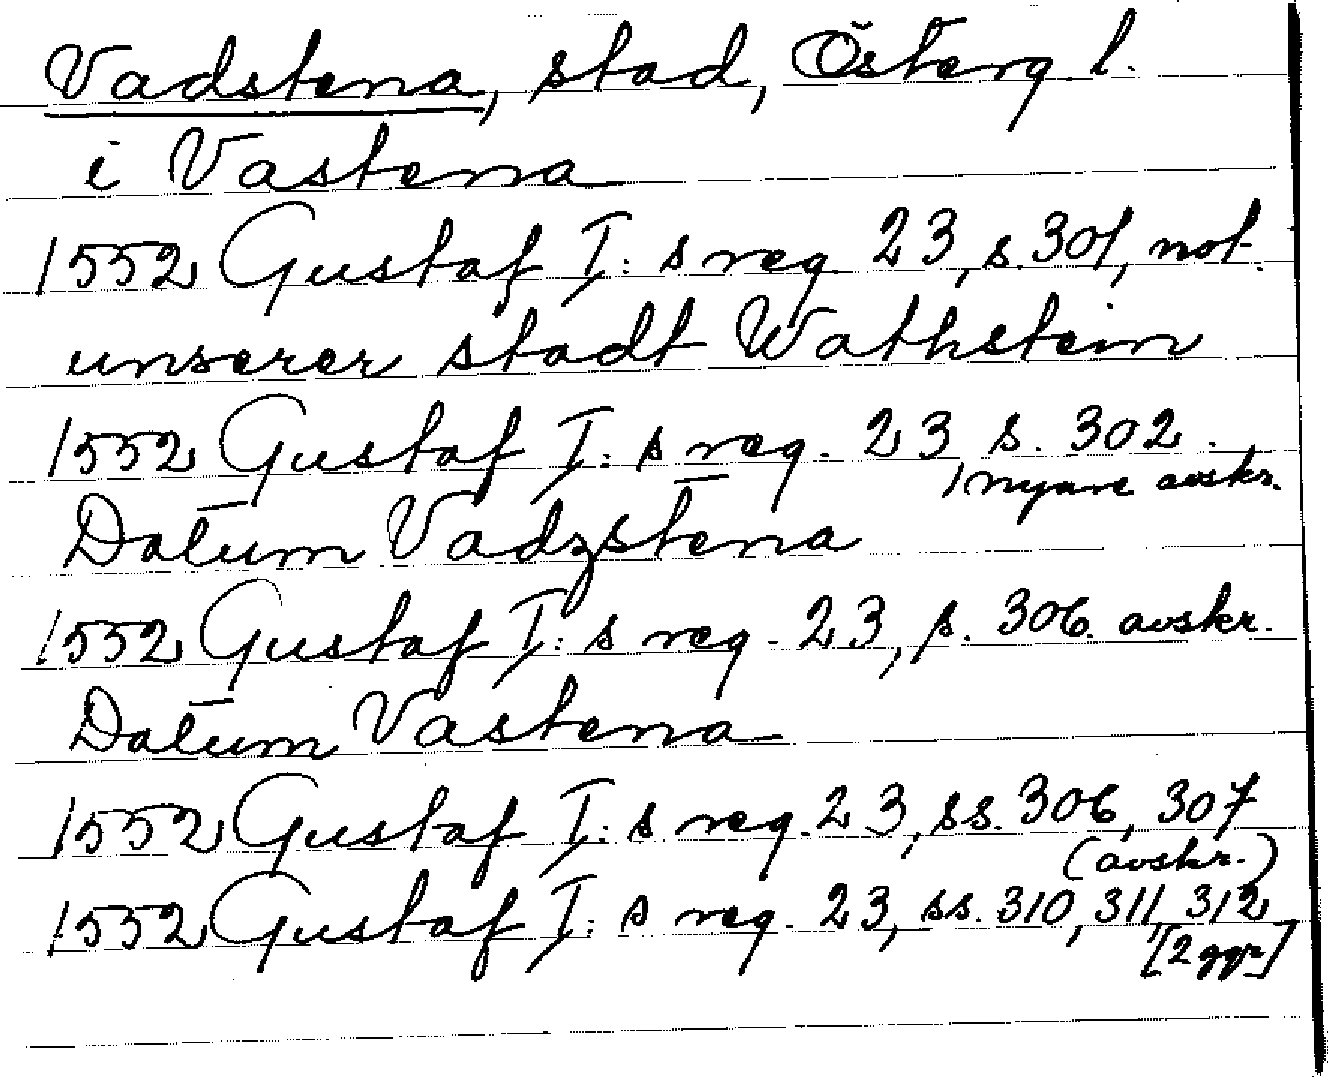 Vadstena, stad, Österg l.
i Vastena
1552 Gustaf I: s reg. 23, s. 301, not.
unserer stadt Wathstein
1552 Gustaf I: s reg. 23 s. 302.
nyare avskr.
Datum Vadzstena
1552 Gustaf I: s reg. 23, s. 306. avskr.
Datum Vastena
1552 Gustaf I: s reg. 23, ss. 306, 307
(avskr.)
1552 Gustaf I: s reg. 23, ss. 310, 311, 312
[2 ggr]